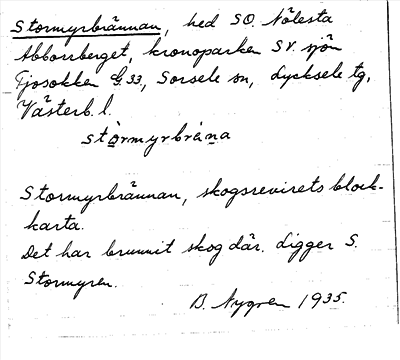 Stormyrbrännan, hed SO. Nölesta
Abborrberget, kronoparken SV. sjön
Fjosokken G.33, Sorsele sn, Lycksele tg,
Västerb. l.
stòrmyrbrèna
Stormyrbrännan, skogsrevirets block-
karta.
Det har brunnit skog där. Ligger S.
Stormyren.
B. Nygren 1935.